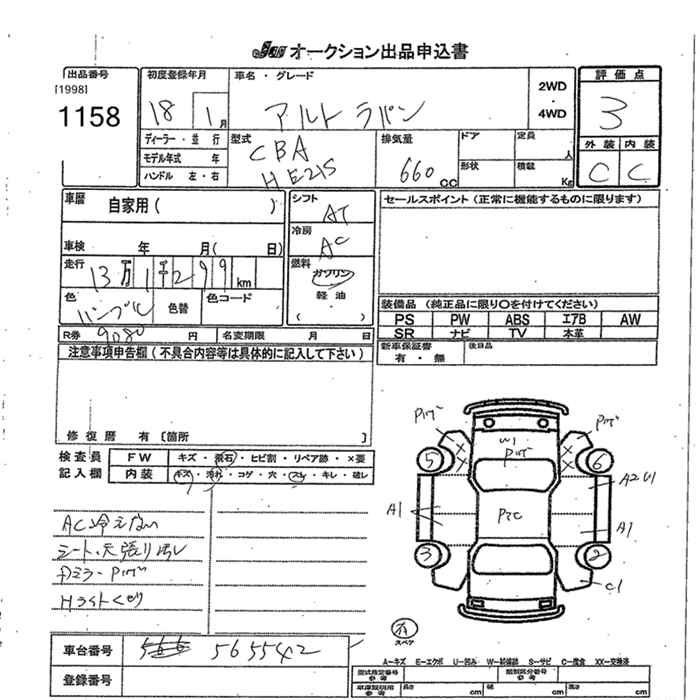 JU オークション出品申込書
出品番号
[1998]
1158
初度登録年月
18 1月
車名・グレード
アルト ラパン
2WD
・
4WD
評価点
3
外装 内装
C C
ディーラー・並行
モデル年式 年
ハンドル 左・右
型式
CBA
HE21S
排気量
660cc
ドア
形状
定員
人
積載
Kg
車歴
自家用( )
車検 年 月( 日)
走行
13万1千299km
色
色替
色コード
シフト
AT
冷房
AC
燃料
ガソリン
軽油
( )
セールスポイント(正常に機能するものに限ります)
装備品(純正品に限り○を付けてください)
PS PW ABS エアB AW
SR ナビ TV 本革
新車保証書
有・無
後日品
R券 9080円 名変期限 月 日
注意事項申告欄(不具合内容等は具体的に記入して下さい)
修復歴 有〔箇所 〕
検査員
記入欄
FW キズ・飛石・ヒビ割・リペア跡・×要
内装 キズ・汚れ・コゲ・穴・スレ・キレ・破レ
AC冷えない
シート・天張り汚レ
Hライトくもり
Pサビ
Pサビ
W1
5
6
A1
PタC
A2 U1
A1
3
2
C1
有
スペア
車台番号 565542
登録番号
A―キズ E―エクボ U―凹み W―補修跡 S―サビ C―腐食 XX―交換済
型式指定番号
参考
類別区分番号
参考
車庫証明用
参考
長さ cm 幅 cm 高さ cm